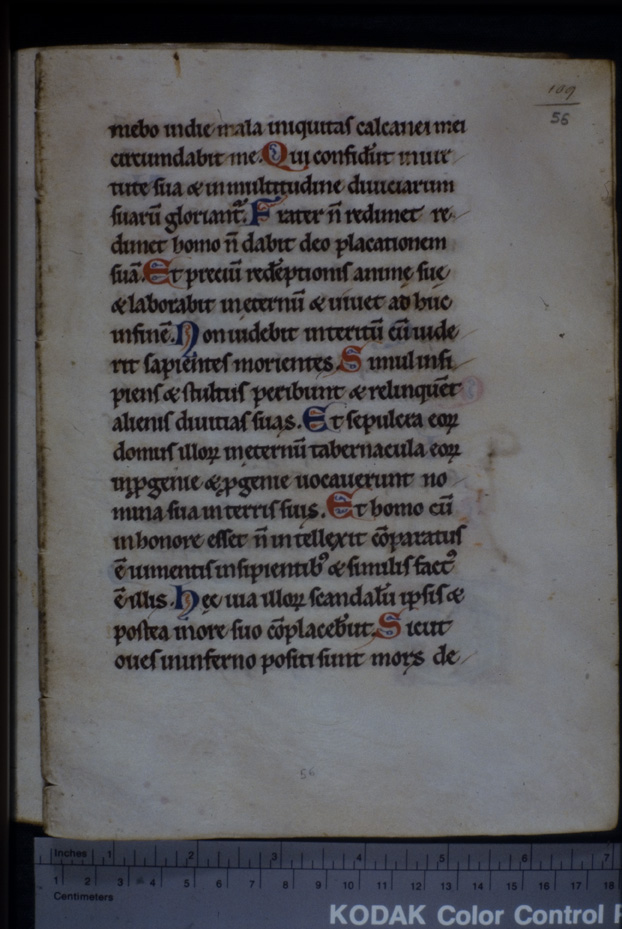 109
56
mebo in die mala iniquitas calcanei mei
circumdabit me. Qui confidūt in uir
tute sua & in multitudine diuiciarum
suarū gloriant᷑. Frater n̄ redimet re
dimet homo n̄ dabit deo placationem
suā. Et preciū redēptionis animę suę
& laborabit in eternū & uiuet ad huc
in finē. Non uidebit interitū cū uide
rit sapientes morientes. Simul insi
piens & stultus peribunt & relinquēt
alienis diuitias suas. Et sepulcra eoꝝ
domus illoꝝ in eternū tabernacula eoꝝ
in ꝓgenie & ꝓgenie uocauerunt no
mina sua in terris suis. Et homo cū
in honore esset n̄ intellexit cōparatus
ē iumentis insipientibꝰ & similis factꝰ
ē illis. Hęc uia illoꝝ scandalū ipsis &
postea in ore suo cōplacebūt. Sicut
oues in inferno positi sunt mors de
56
Inches 1 2 3 4 5 6 7
1 2 3 4 5 6 7 8 9 10 11 12 13 14 15 16 17 18
Centimeters
KODAK Color Control